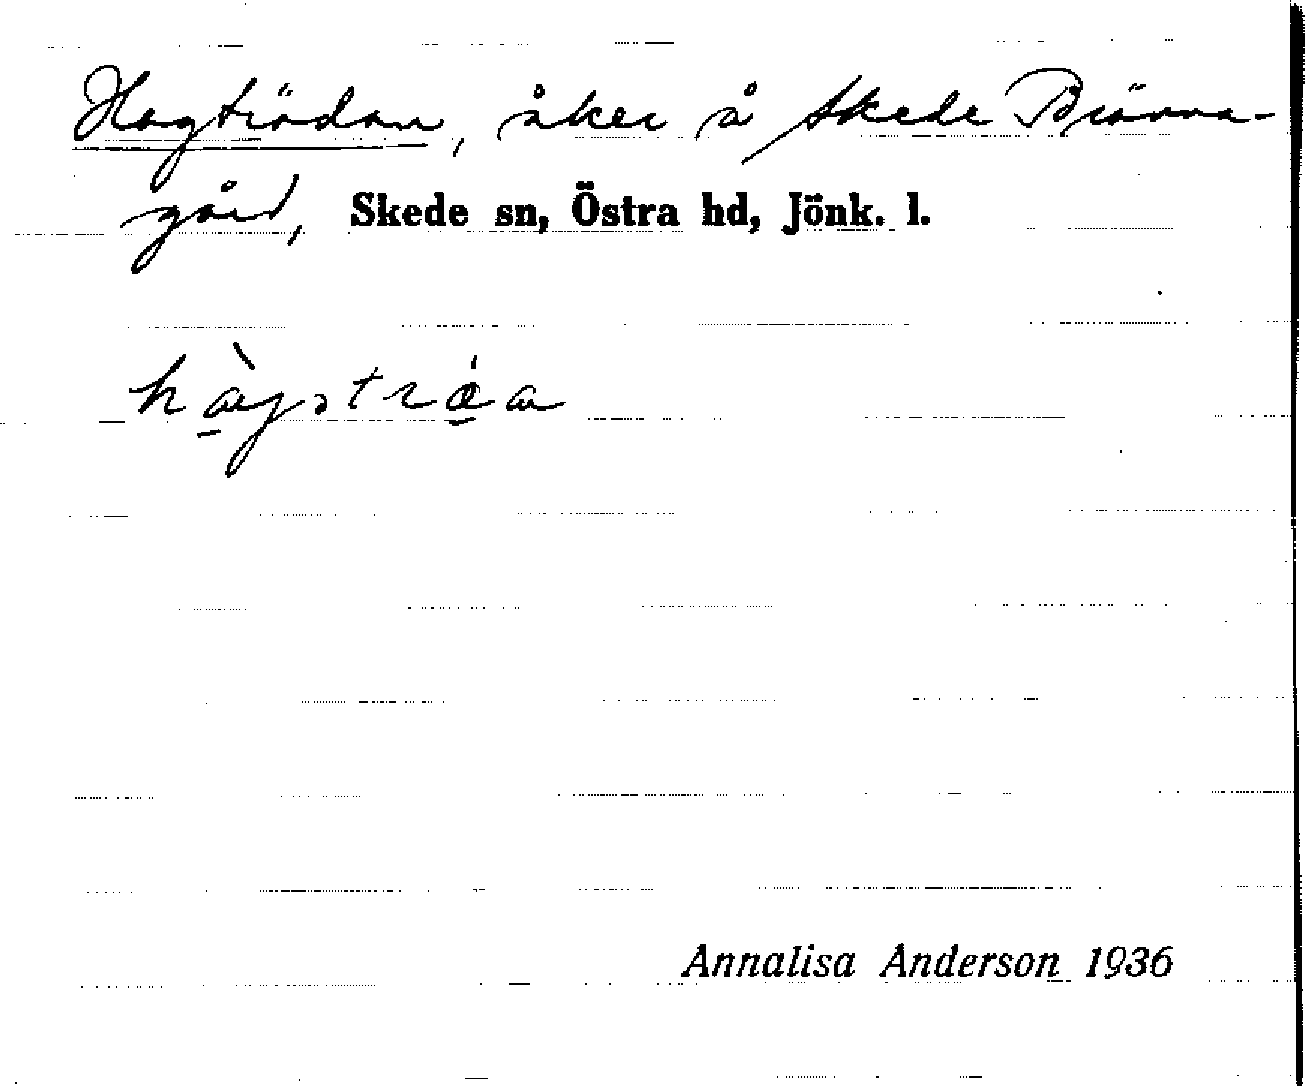 Hagträdan, åker å Skede Björna-
gård, Skede sn, Östra hd, Jönk. l.
Annalisa Anderson 1936